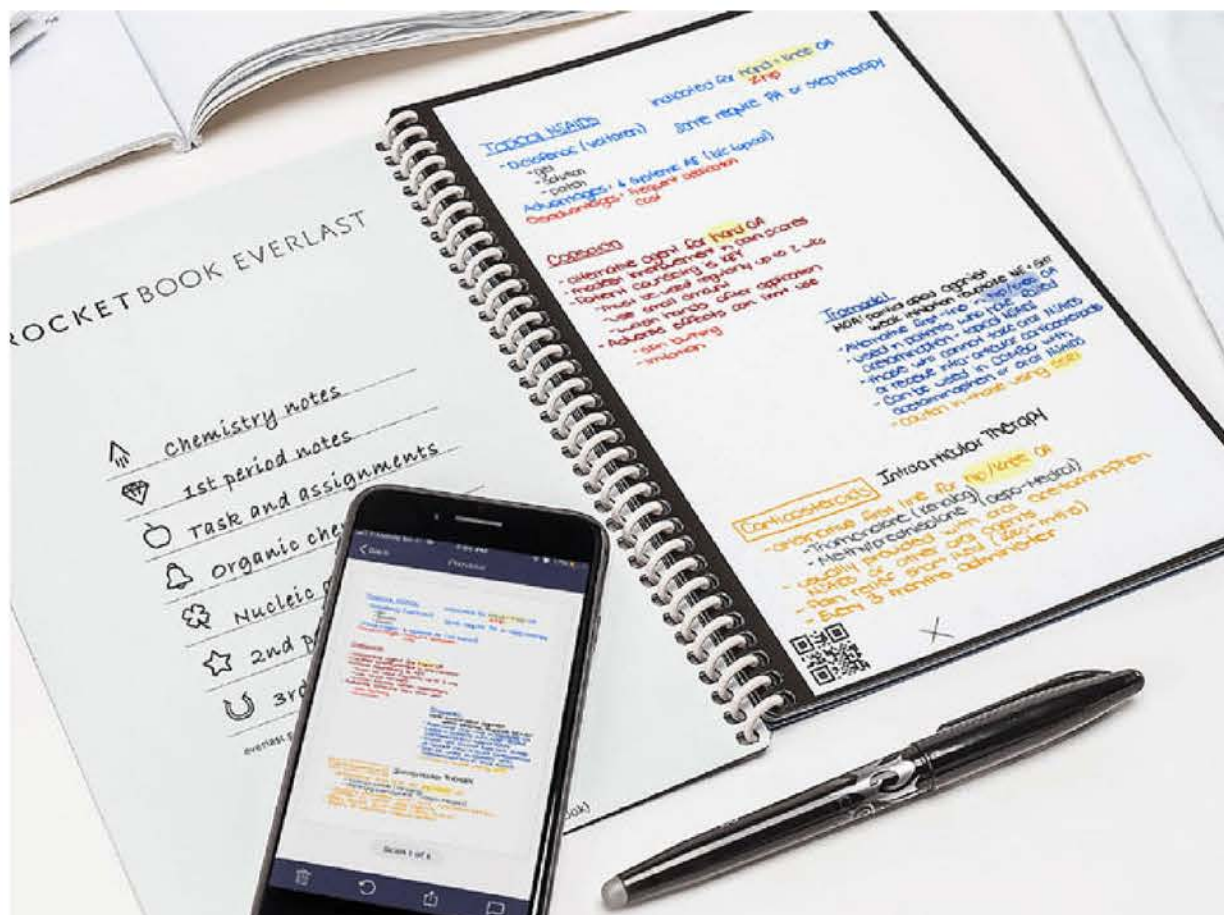 ROCKETBOOK EVERLAST
Chemistry notes
1st period notes
Task and assignments
organic che
Nucleic
2nd p
3rd
everlast
Topical NSAIDs
indicated for hand + knee OA
hip
- Diclofenac (voltaren)
some require PA or step therapy
- gel
- solution
- patch
Advantages: ↓ systemic AE (b/c topical)
Disadvantages: frequent application
cost
Capsaicin
- alternative agent for hand OA
- modest improvement in pain scores
- Patient counseling is KEY
- must be used regularly up to 2 wks
- use small amount
- wash hands after application
- Adverse effects can limit use
- skin burning
- irritation
Tramadol
MOA: partial opioid agonist
weak inhibition reuptake NE + 5HT
- Alternative first-line in hip/knee OA
- used in patients who have failed
acetaminophen + topical NSAIDs
- those who cannot take oral NSAIDs
or receive intra-articular corticosteroids
- Can be used in combo with
acetaminophen or oral NSAIDs
- caution in those using SSRI
Intraarticular Therapy
Corticosteroids
- alternative first line for hip/knee OA
- Triamcinolone (Kenalog)
- Methylprednisolone (Depo-Medrol)
- usually provided with oral acetaminophen
NSAIDs or other oral agents
- Pain relief short lived
- Every 3 months administer
Back
Preview
Scan 1 of 1
ook)